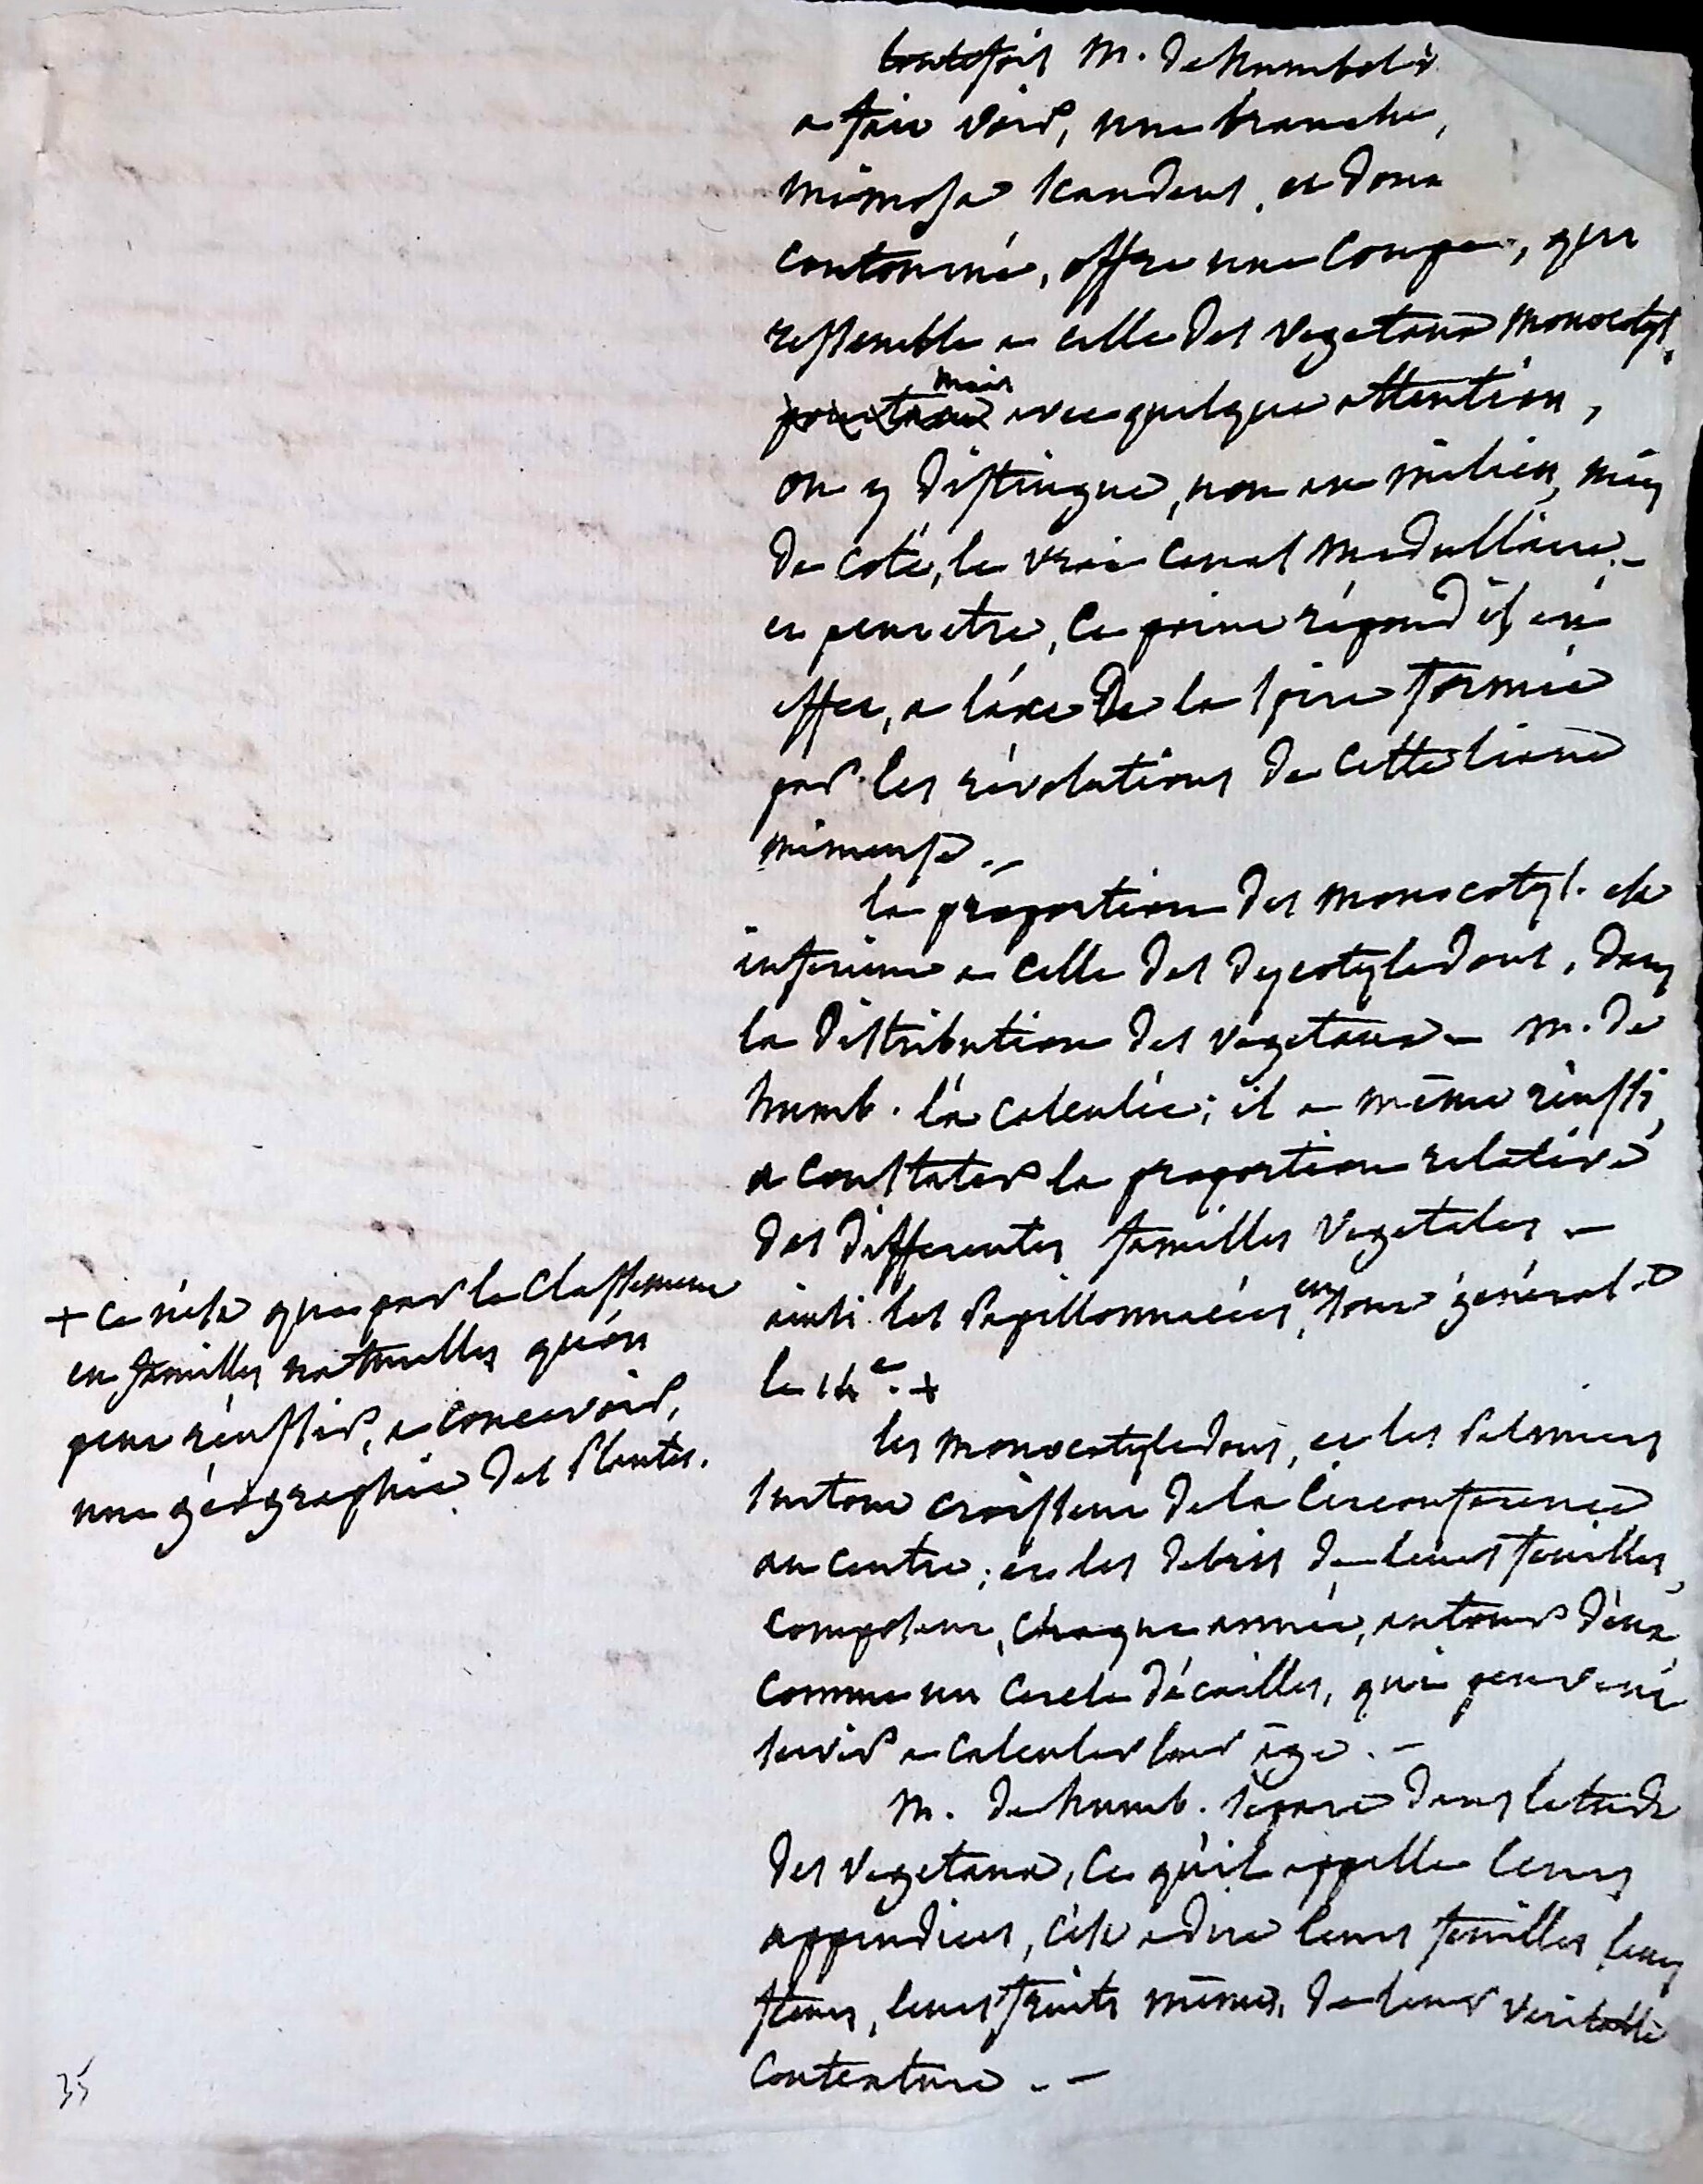 toutefois M. de humboldt
a fait voir, une branche,
mimosa scandens, et dont
contourné, offre une coupe, qui
ressemble a celle des vegetaux monocotyl.
pourtant mais avec quelque attention,
on y distingue, non au milieu, mais
de coté, le vrai canal medullaire. -
et peut etre, ce point répond il en
effet, a l'axe de la spire formée
par les révolutions de cette liane
immense. -
la proportion des monocotyl. est
inferieure a celle des dycotyledons, dans
la distribution des végetaux - M. de
humb. l'a calculée; il a même réussi,
a constater la proportion relative
des differentes familles vegetales. -
ainsi les Papillonnacées, en sont général t
le 14e. +
+ ce n'est que par le classement
en familles naturelles qu'on
peut réussir, a concevoir,
une géographie des Plantes.
les monocotyledons, et les Palmiers
surtout croissent de la circonference
au centre; et les debris de leurs feuilles,
composent, chaque année, autour d'eux,
comme un cercle d'écailles, qui peuvent
servir a calculer leur âge. -
M. de humb. separe dans l'etude
des vegetaux, ce qu'il appelle leurs
appendices, c'est a dire leurs feuilles leurs
fleurs, leurs fruits mêmes, de leur veritable
contexture. -
35